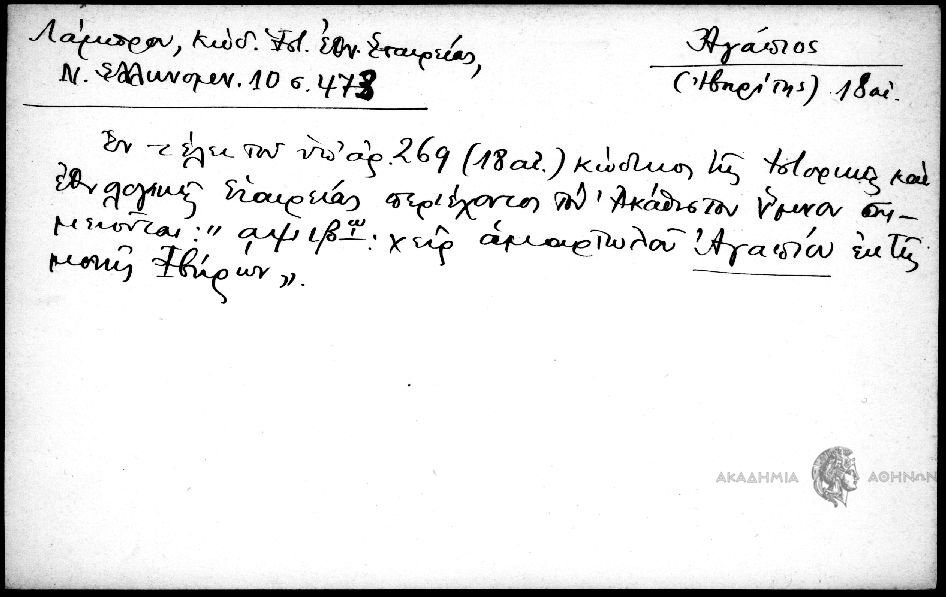 Λάμπρου, Κώδ. Ἱστ. ἐθν. Ἑταιρείας,
Ν. Ἑλληνομν. 10 σ. 473
Ἀγάπιος
(Ἰβηρίτης) 18 αἰ.
Ἐν τέλει τοῦ ὑπ' ἀρ. 269 (18 αἰ.) κώδικος τῆς Ἱστορικῆς καὶ
ἐθνολογικῆς Ἑταιρείας περιέχοντος τὸν Ἀκάθιστον Ὕμνον ση-
μειοῦται: „ : χεὶρ ἁμαρτωλοῦ Ἀγαπίου ἐκ τῆς
μονῆς Ἰβήρων".
ΑΚΑΔΗΜΙΑ ΑΘΗΝΩΝ